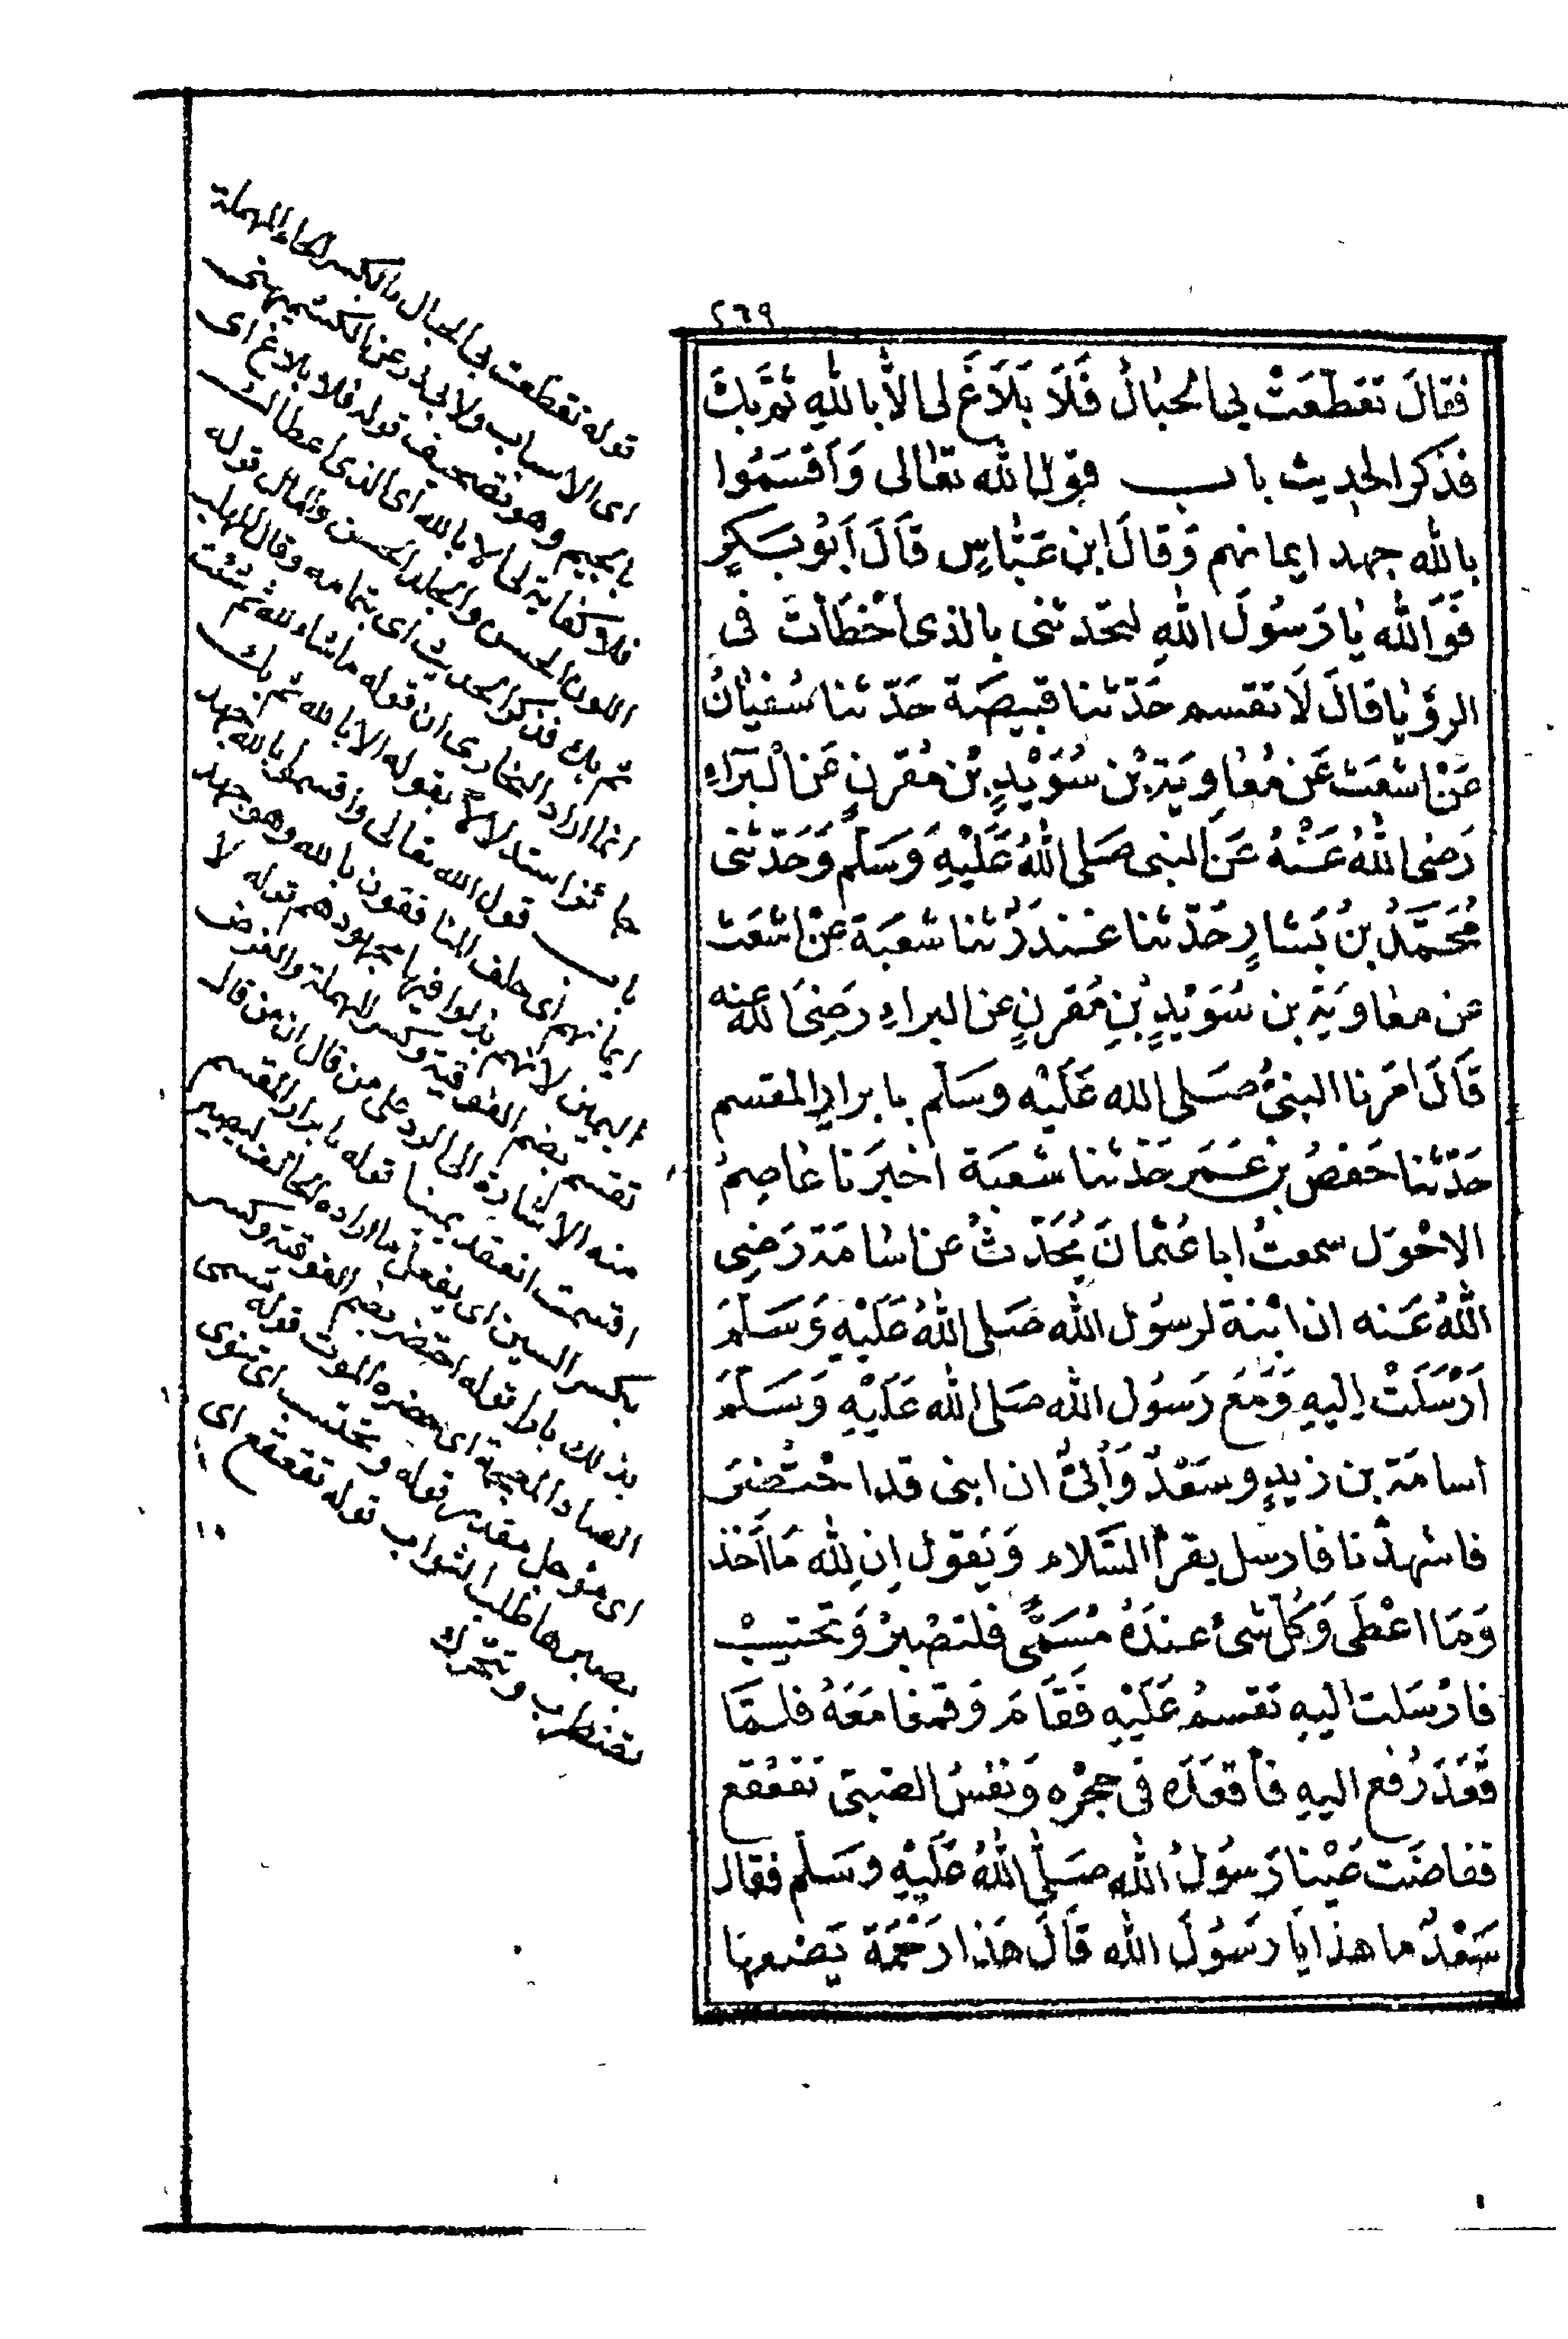 ٢٦٩
فقالَ تقطّعَتْ بي الحبالُ فَلَا بَلَاغَ لي الّا بالله ثمّ بكَ
فذكر الحديث باب قول الله تعالى وَاَقْسَمُوا
بالله جهد ايمانهم وَقالَ ابن عَبّاسٍ قَالَ اَبُو بَكرٍ
فَوَالله يا رَسُولَ الله لتحَدّثنى بالذى اَخْطأتَ فى
الرؤيا قالَ لَا تقسم حَدّثنا قبيصَة حَدّثنا سُفيٰانُ
عَنْ اشعَث عَن مُعٰاوِيَة بن سُوَيْدٍ بْن مُقرنٍ عَن الْبَرَآءِ
رَضِى اللهُ عَنْهُ عَن النبى صَلى اللهُ عَلَيْهِ وَسَلّم وَحَدّثنى
مُحَمَّدُ بنُ بَشارٍ حَدّثنا غندَرٌ ثنا شعبَة عَنْ اشعَث
عن معاويَة بن سُوَيْدٍ بْنِ مُقرنٍ عن البراءِ رَضِىَ الله عنه
قَالَ امَرنا النبىُّ صَلى الله عَلَيْه وسَلّم بابرارِ المقسم
حَدّثنا حَفصُ بن عُمَر حَدّثنا شعبَة اخبرَنا عَاصِمُ
الاحْوَل سمعتُ ابا عُثمانَ يُحَدّثُ عن اسَامَة رَضِى
اللهُ عَنه ان ابْنة لرسُول الله صَلى اللهُ عَلَيْهِ وَسَلّمَ
اَرْسَلَتْ اِليهِ وَمَعَ رَسُول الله صَلى الله عَلَيْهِ وَسَلّمَ
اسامَة بن زيدٍ وسَعْدٌ وَاُبىٌّ ان ابنى قد احْتُضِرَ
فاشهدْنا فارسل يقرأُ السَّلام وَيَقول اِن لِله مَا اَخَذ
وَمَا اعْطَى وَكُل شىْءٍ عندَهُ مُسَمًّى فلتصْبِرْ وَتحتسِبْ
فارْسَلت اليهِ تقسمُ عَلَيْهِ فَقَامَ وَقمْنا مَعَهُ فلمَّا
قَعَدَ رُفع اليهِ فاَقعَدَه فى حجْرِه وَنفسُ الصَّبىّ تَقَعْقع
ففاضَت عَيْنا رَسُولُ الله صَلّى اللهُ عَلَيْهِ وسَلّم فقال
سَعْدٌ ما هذا يَا رَسُولَ الله قَالَ هَذا رَحْمَة يَضعها
قوله تقطعت بى الحبال بالكسر الحاء المهملة
اى الاسباب ولابى ذر عن الكشميهنى
بالجيم وهو تصحيف قوله فلا بلاغ اى
فلا كفاية لى الا بالله اى الذى اعطاك
اللون الحسن والجلد الحسن والمال قوله
ثم بك فذكر الحديث اى بتمامه وقال المهلب
انما اراد البخارى ان قوله ما شاء الله ثم شئت
جائز استدلالا بقوله الا بالله ثم بك
باب قول الله تعالى واقسموا بالله جهد
ايمانهم اى حلف المنافقون بالله وهو جهد
اليمين لانهم بذلوا فيها مجهودهم قوله لا
تقسم بضم الفوقية وكسر المهملة والغرض
منه الاشارة الى الرد على من قال ان من قال
اقسمت انعقد يمينا قوله بابرار المقسم
بكسر السين اى يفعل ما اراده الحالف ليصير
بذلك بارا قوله احتضر بضم الفوقية وكسر
الضاد المعجمة اى حضره الموت قوله مسمى
اى مؤجل مقدر قوله وتحتسب اى تنوى
بصبرها طلب الثواب قوله تقعقع اى
تضطرب وتتحرك